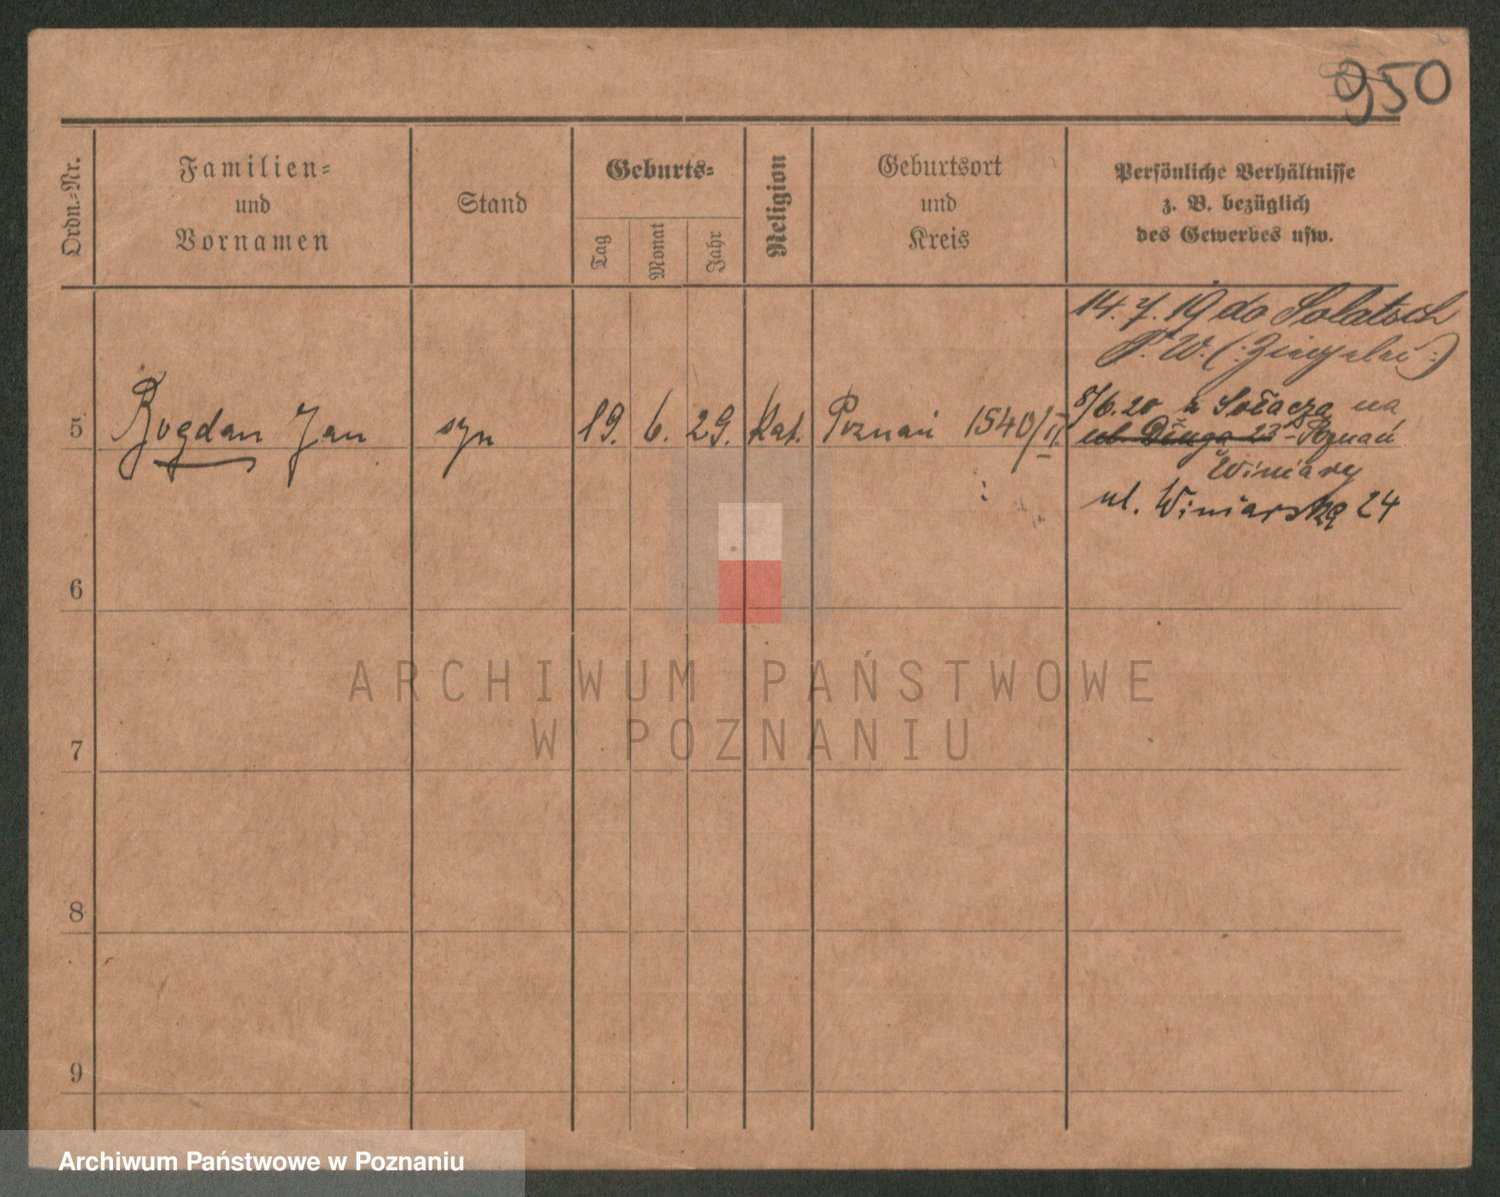 950
Ordn.-Nr.
Familien-
und
Vornamen
Stand
Geburts-
Tag
Monat
Jahr
Religion
Geburtsort
und
Kreis
Persönliche Verhältnisse
z. B. bezüglich
des Gewerbes usw.
14. 7. 19 do Solatsch
P. W.
5 Bogdan Jan syn 19. 6. 29. Kat. Poznań 1540/II
8/6.20 z Sołacza na
ul. Długa 23 Poznań
Winiary
ul. Winiarska 24
6
7
8
9
ARCHIWUM PAŃSTWOWE
W POZNANIU
Archiwum Państwowe w Poznaniu